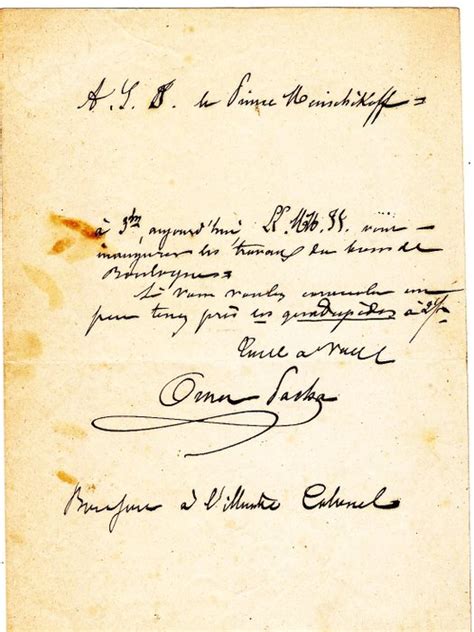 A. S. E. le Prince Menschikoff =
à 3h aujourd'hui LL. MM. II. vont
inaugurer les travaux du bois de
Boulogne =
Si vous voulez un
peu tenez près les quadrupèdes à 2h
Tout à vous
Omer Pacha
Bonjour à l'illustre Colonel